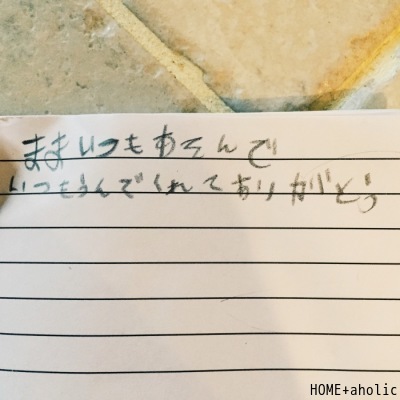 ままいつもあそんで
いつもうんでくれてありがとう
HOME+aholic